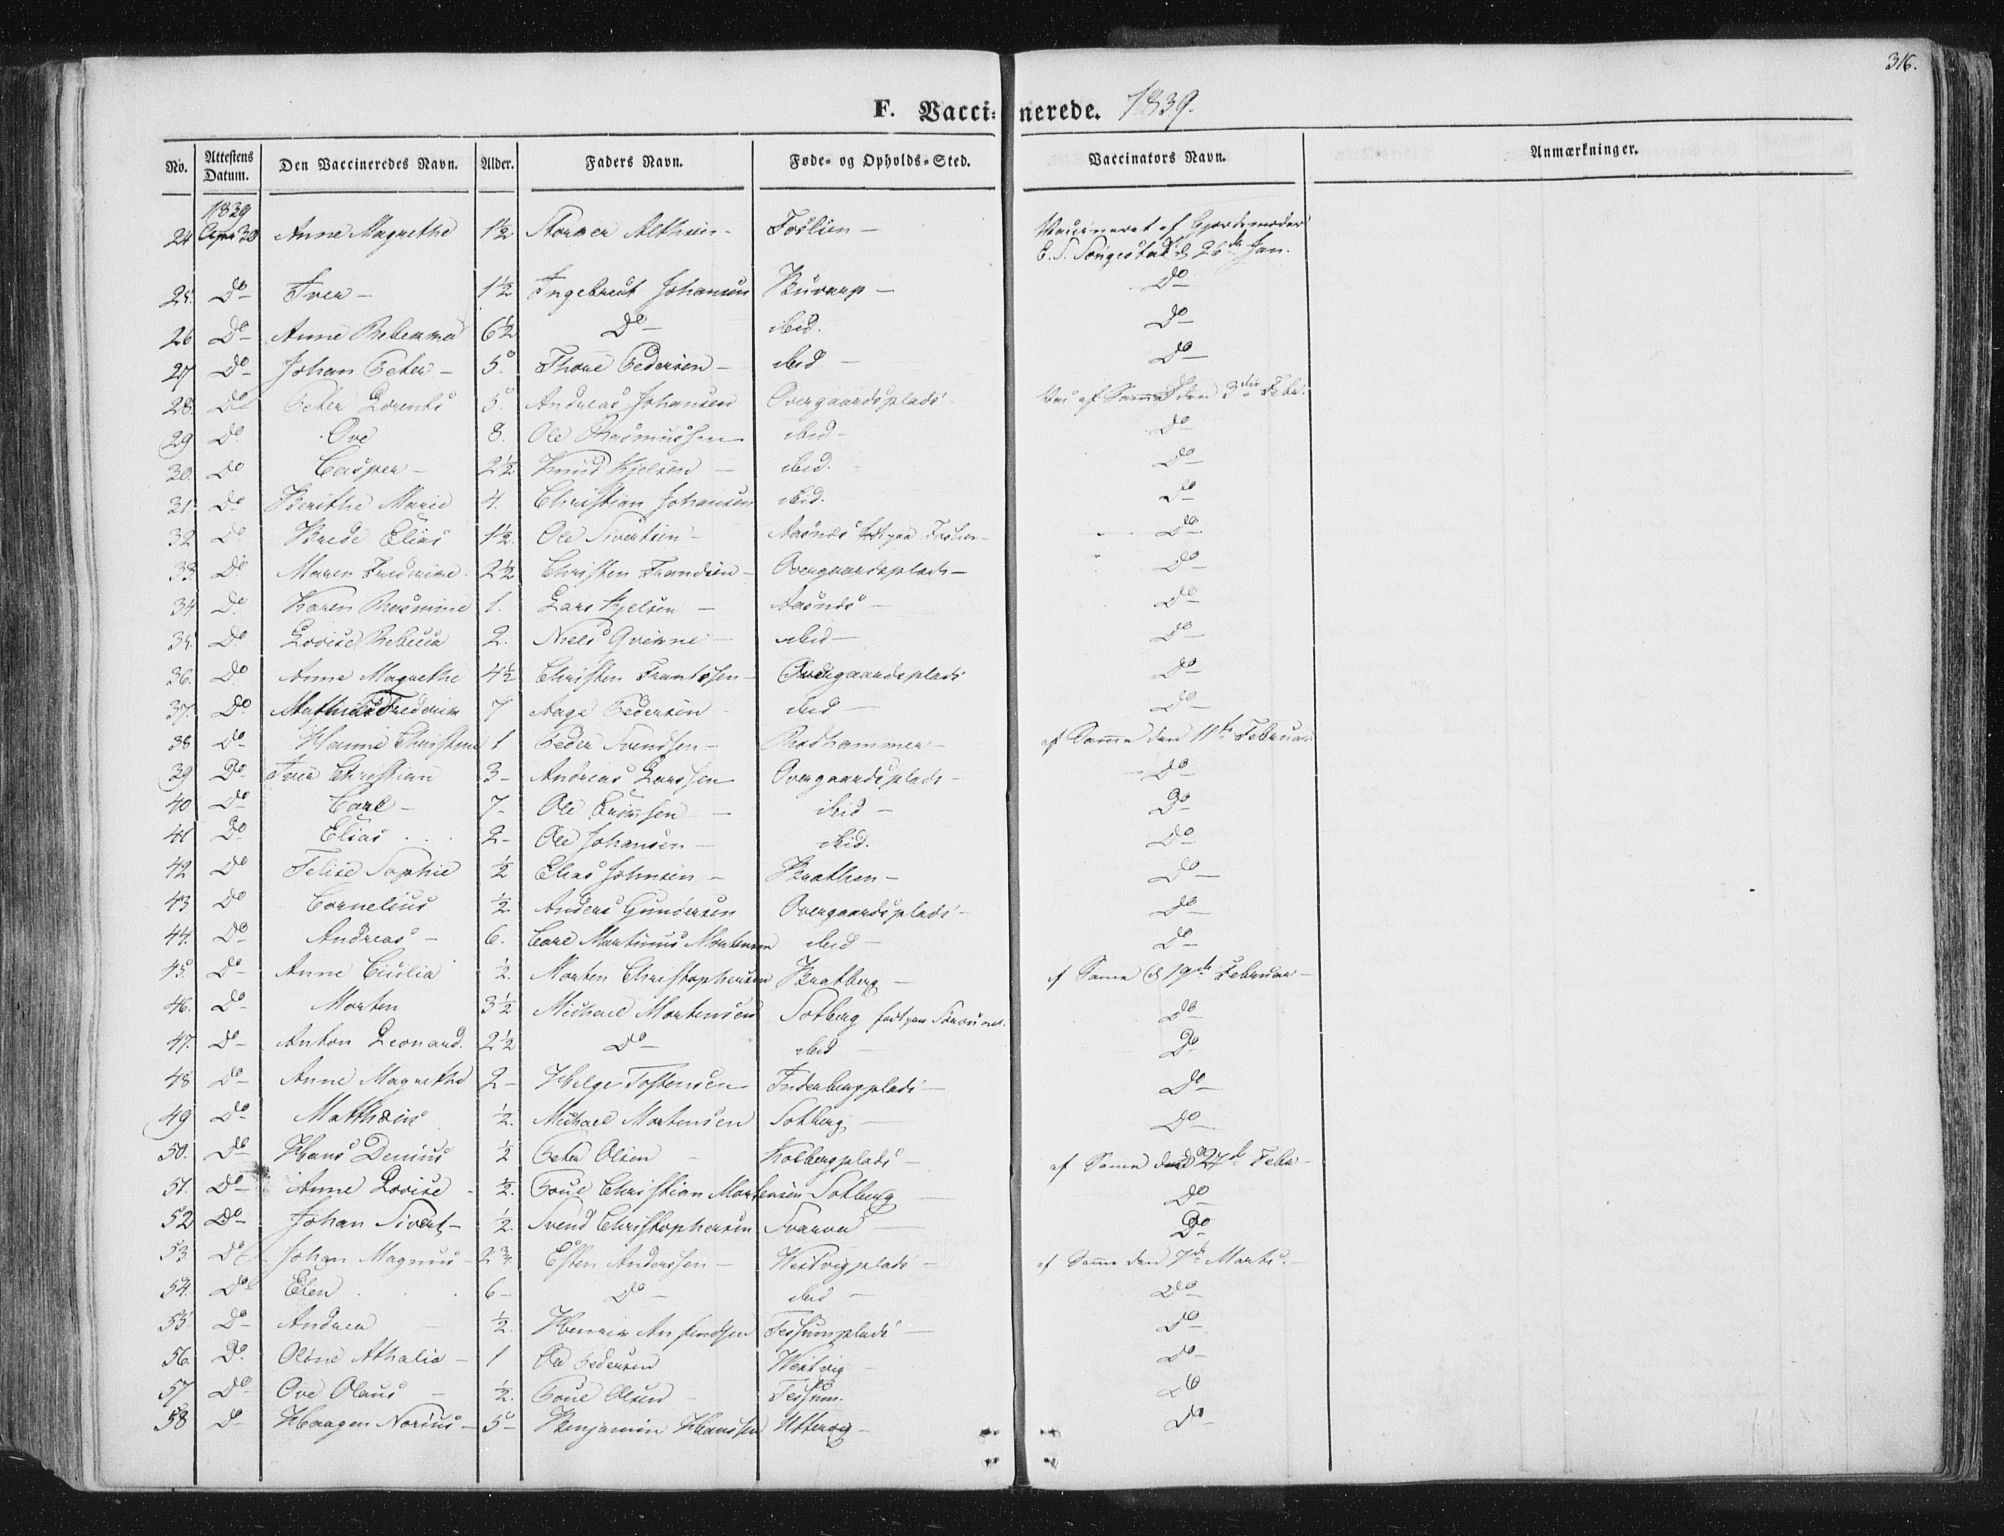 316.
F. Vaccinerede. 1839.
No. Attestens Datum. Den Vaccineredes Navn. Alder. Faders Navn. Føde- og Opholds-Sted. Vaccinators Navn. Anmærkninger.
1839
24 Apr 30 Anne Magrethe 1½ Foslien - Vaccineret af Gjordemoder
E. S. Songestad d 26de Jan.
25. Do Iver - 1½ Ingebregt Johansen Do
26 Do Anne Rebekka 6½ Do ibid. Do
27 Do Johan Peter - 5. Thore Pedersen - ibid - Do
28. Do Peter Lorents 5. Andreas Johansen Overgaardsplads - Vac af Samme den 3die Febr.
29 Do Ove 8. Ole Rasmussen ibid - Do
30. Do Casper - 2½ Knud Kjelsen - ibid. Do
31 Do Berithe Marie 4. Christian Johansen ibid. Do
32 Do Brede Elias 1½ Ole Sivertsen - Aasnes født paa Foslien - Do
33. Do Maren Frederine 2½ Christen Frandsen - Overgaardsplads - Do
34 Do Karen Rasmine 1. Lars Kjelsen - Aasnes - Do
35. Do Lovise Rebecca 2. Niels - ibid - Do
36. Do Anne Magrethe 4½ Christen Frantssen - Overgaardsplads Do
37. Do Mathias Frederik 7 Aage Pedersen - ibid - Do
38 Do Hanna Christine 1 Peder Svendsen - Rodhammer - af Samme den 11te Februar
39 Do Iver Christian 3 - Andreas Larssen Overgaardsplads - Do
40 Do Carl - 7 - Ole - ibid - Do
41 Do Elias 2 - Ole Johansen - ibid. Do
42 Do Felise Sophie ½ Elias Johnsen - Brathen - Do
43 Do Cornelius ½ Anders Gundersen Overgaardsplads - Do
44. Do Andreas - 6. Carl Martinus Mortensen ibid - Do
45. Do Anne Cicilia ½. Morten Christophersen Bratberg - af Samme d 19de Februar -
46. Do Morten 3½ Michael Mortensen Solberg født paa Do
47. Do Anton Leonard. 2½ Do ibid - Do
48 Do Anne Magrethe 2 - Helge Tostensen Inderbergplads - Do
49 Do Mathæus ½. Michael Mortensen Solberg - Do
50. Do Hans Denius ½ Peter Olsen - Kolbergplads - af Samme den 27de Febr -
51. Do Anne Lovise ½. Poul Christian Mortensen Solberg - Do
52 Do Johan Sivert - ½. Svend Christophersen Svarva - Do
53. Do Johan Magnus - 2¾ Esten Anderssen - Westvigplads - af Samme den 7de Marts. -
54. Do Elen 6 - Do ibid - Do
55. Do Andrea - ½. Henrik Amfindsen Fossumplads - Do
56. Do Oline Athalia - 1 Ole Pedersen Westvig - Do
57 Do Ove Olaus - ½. Poul Olsen - Fossum. Do
58 Do Haagen Norius - 5 - Benjamin Hanssen Utvorg - Do